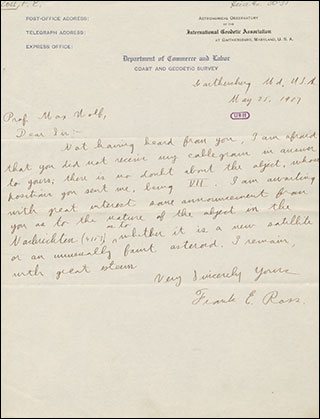 POST-OFFICE ADDRESS:
TELEGRAPH ADDRESS:
EXPRESS OFFICE:
ASTRONOMICAL OBSERVATORY
OF THE
International Geodetic Association
AT GAITHERSBURG, MARYLAND, U. S. A.
Department of Commerce and Labor
COAST AND GEODETIC SURVEY
Gaithersburg Md, U.S.A.
May 21, 1907
Prof. Max Wolf,
Dear Sir:-
Not having heard from you, I am afraid
that you did not receive my cablegram in answer
to yours; there is no doubt about the object, whose
positions you sent me, being VII. I am awaiting
with great interest some announcement from
you as to the nature of the object in the
Nachrichten, as to whether it is a new satellite
or an unusually faint asteroid. I remain,
with great esteem
Very Sincerely Yours
Frank E. Ross.